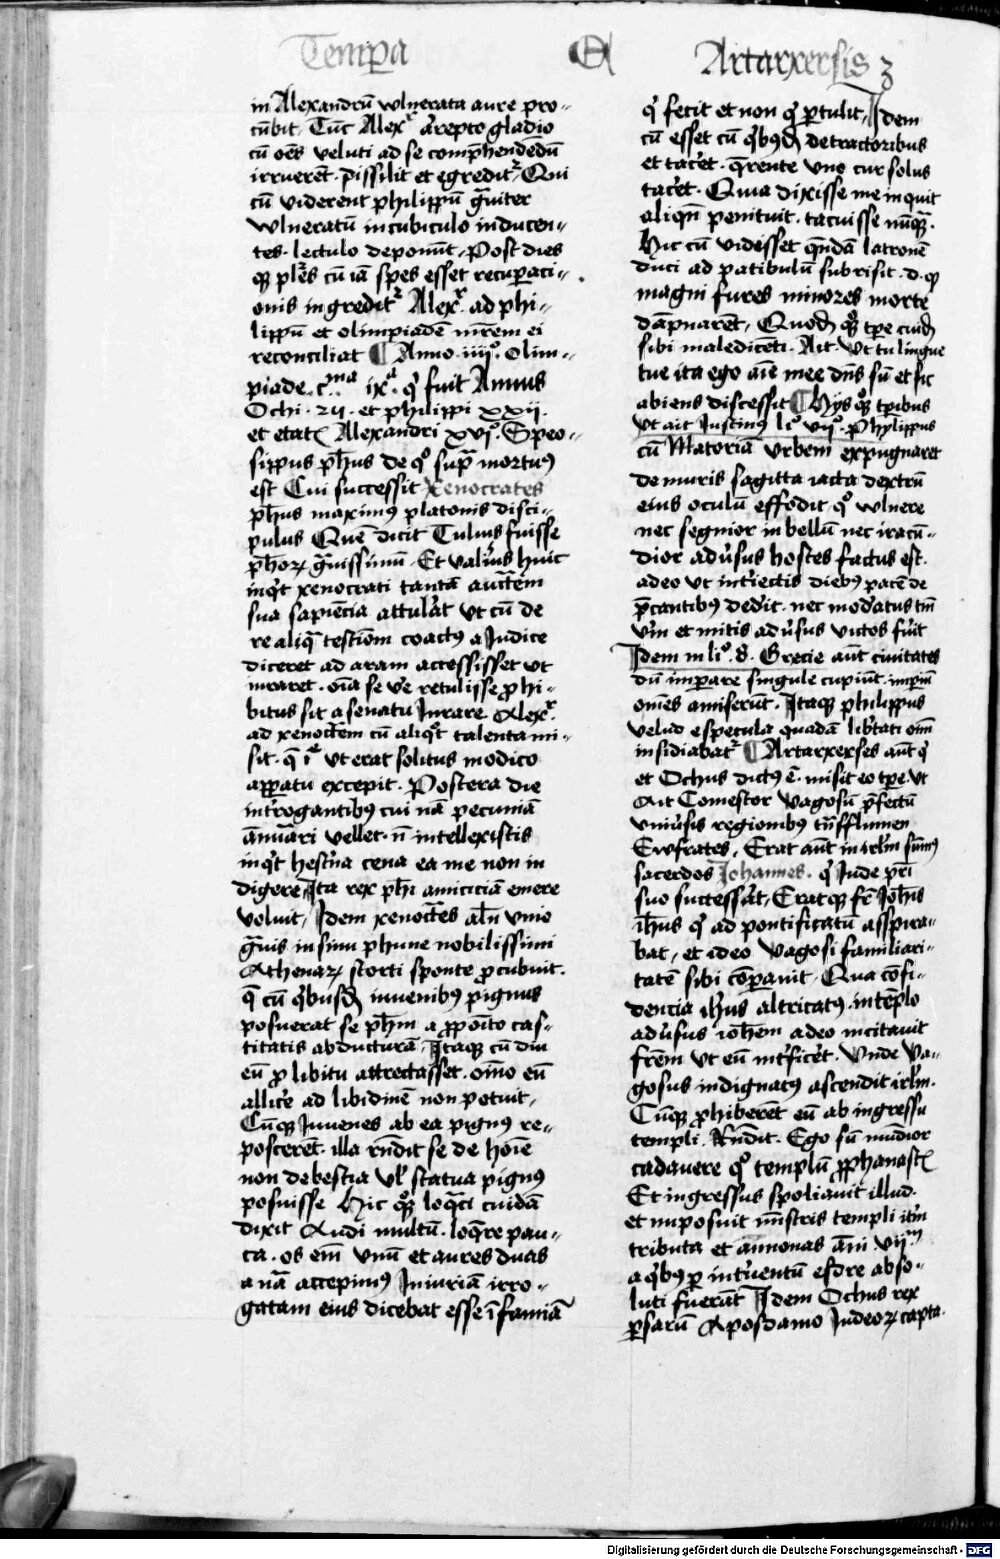 Tempa
Artarxersis 3
in Alexandrū vulnerata aure pro-
cūbit. Tūc Alexʳ arrepto gladio
cū oēs veluti ad se comp̄hendēdū
irruerēt. p̄ssilit et egreditʳ. Qui
cū viderent philippū gͣuiter
vulneratū in cubiculo inducen-
tes. lectulo deponūt. Post dies
qͦꝫ pl̄es cū iā spes esset recuꝑaci-
onis ingreditʳ Alexʳ ad phi-
lippū et olimpiadē m̄rem ei
reconciliat ¶ Anno .iiiiº. Olim-
piade .cᵐᵃ ixᵃ. qͥ fuit Annus
Ochi .24. et philippi xxij.
et etatꝭ Alexandri xvjº. Speo-
sippus ph̄us de qͦ supͣ mortuꝰ
est Cui successit Xenocrates
ph̄us maximꝰ platonis disci-
pulus Quē dicit Tulius fuisse
ph̄oꝝ gͣuissimū. Et valiꝰ huic
inqͥt xenocrati tantā auct̄em
sua sapiēcia attul̓at ut cū de
re aliqͣ testiōm coactꝰ a Judice
diceret ad aram accessisset ut
iuraret. oīa se ve̓ retulisse ꝓhi-
bitus sit a senatu Jurare Alexʳ.
ad xenoct̄em cū aliqͦt talenta mi-
sit. q̄ ī ut erat solitus modico
apꝑatu excepit. Postera die
int̓rogantibꝰ cui nā pecuniā
ānūari vellet. n̄ intellexistis
inqͥt hest̓na cena ea me non in
digere Ita rex phī amiciciā emere
voluit, Idem xenoct̄es al̄n vino
gͣuis in sinu phrine nobilissimi
Athenaꝝ scorti sponte ꝓcubuit.
q̄ cū qͥbusdā iuuenibꝰ pignus
posuerat se ph̄m a ꝓpoīto cas-
titatis abducturā. Itaqꝫ cū diu
eū ꝓ libitu attrectasset. oīno eū
allic̓e ad libidinē non potuit,
Cūqꝫ Juuenes ab ea pignꝰ re-
poscerēt. illa rn̄dit se de hoīe
non de bestia vl̓ statua pignꝰ
posuisse Hic qͦꝫ loqͣci cuidā
dixit Audi multū. loqͤre pau-
ca. os eīm unū et aures duas
a nā accepimꝰ Iniuriā irro-
gatam eius dicebat esse īfamiā
qͥ fecit et non qͥ ꝑtulit, Idem
cū esset cū qͥbꝰdā detractoribus
et tac̓et. q̄rente uno cur solus
tac̓et. Quia dixisse me inquit
aliqn̄ penituit. tacuisse nūqͣꝫ.
Hic cū vidisset qͦndā latronē
duci ad patibulū subrisit .d. qͦ
magni fures minores morte
dāpnarēt, Quod qͦꝫ tꝑe cuidā
sibi maledicēti. Ait. Ut tu lingue
tue ita ego aīe mee dn̄s sū et sic
abiens discessit ¶ Hijs qͦꝫ tꝑibus
ut ait Justinꝰ liº vijº. Phylippus
cū Matoriā urbem expugnaret
de muris sagitta iacta dextrū
eius oculū effodit. qͦ vulnere
nec segnior in bellū nec iracū-
dior ad u̓sus hostes factus est.
adeo ut int̓iectis diebꝰ pacē de
p̄cantibꝰ ded̓it. nec mod̓atus tm̄
v̓m et mitis adu̓sus victos fu̓it
Idem in liº .8. Grecie aūt ciuitates
dū imꝑare singule cupiūt. imꝑiū
om̄es amiserūt. Itaqꝫ philippus
velud e specula quadā lib̓tati oīm
insidiabatʳ ¶ Artarxerses aūt qͥ
et Ochus dictꝰ ē. misit eo tꝑe. ut
Ait Comestor Vagosū p̄fectū
vniu̓sis regionibꝰ tn̄sfflumen
Ewfrates, Erat aūt in irl̄m sūmꝰ
sacerdos Johannes. qͥ Jude pr̄i
suo succes̓at, Eratqꝫ fr̄ Joh̄is
ih̄us qͥ ad pontificatū asspira-
bat, et ideo Vagosi familiari-
tatē sibi cōꝑauit. Qua cōfi-
dencia ih̄us altricatꝰ in tēplo
adu̓sus ioh̄em adeo incitauit
fr̄em ut eū int̓fic̓et. Unde Va-
gosus indignatꝰ ascendit irl̄m.
Cūqꝫ ꝓhiberēt eū ab ingressu
templi. Rn̄dit. Ego sū mūdior
cadauere qͦ templū ꝓphanastꝭ
Et ingressus spoliauit illud.
et imposuit mīstris templi itm̄
tributa et annonas āni vijᵐ
a qͥbꝰ ꝑ int̓uentū esdre abso-
luti fuerāt Idem Ochus rex
ꝑsarū Aposdamo Judeoꝝ capta.
Digitalisierung gefördert durch die Deutsche Forschungsgemeinschaft - DFG